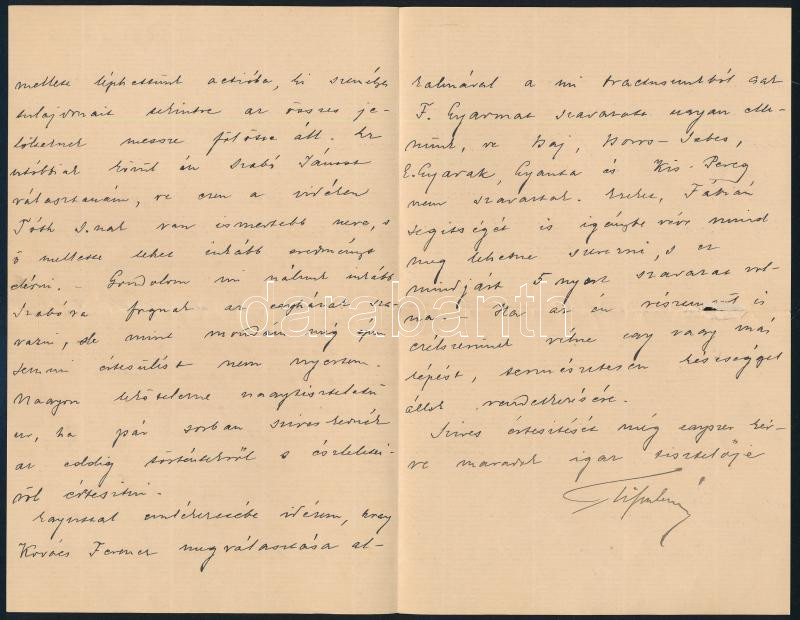 mellett léphettünk actióba, ki személyes
tulajdonait tekintve az összes je-
lölteknek messze fölötte áll. Ez
utóbbiak közül én Szabó Jánost
választanám, ve ezen a vidéken
Tóth S.nak van ismertebb neve, s
ő mellette lehet inkább eredményt
elérni. – Gondolom mi nálunk inkább
Szabóra fognak az egyházak sza-
vazni, de mint mondám még épen
semmi értesülést nem nyertem.
Nagyon lekötelezne nagytiszteletű
ur, ha pár sorban sziveskednék
az eddig történtekről s észleletei-
ről értesíteni.
Egyuttal emlékezetébe idézem, hogy
Kovács Ferencz megválasztása al-
kalmával a mi tractusunkból csak
F. Gyarmat szavazott ugyan elle-
nünk, ve Haj, Boros-Sebes,
E.Gyarak, Gyanta és Kis-Pereg
nem szavaztak. Ezeket, Fábián
segitségét is igénybe véve mind
meg lehetne szerezni, s ez
mindjárt 5 nyert szavazat vol-
na. – Ha az én részemről is
czélszerünek vélne egy vagy más
lépést, természetesen készséggel
állok rendelkezésére.
Szives értesitését még egyszer kér-
ve maradok igaz tisztelője